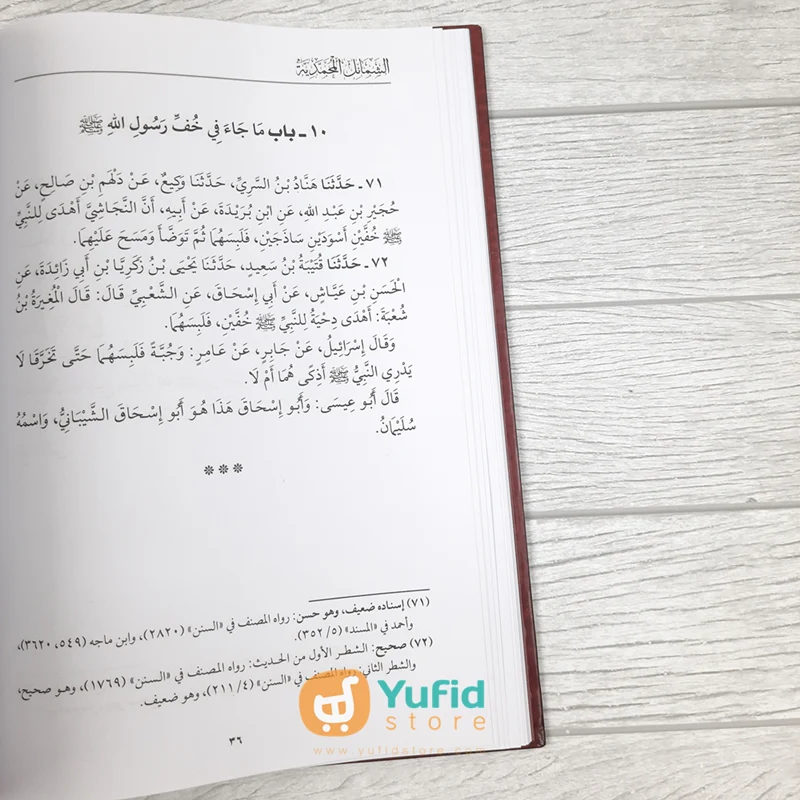 الشمائل المحمدية
١٠ - باب مَا جَاءَ فِي خُفِّ رَسُولِ اللهِ ﷺ
٧١ - حَدَّثَنَا هَنَّادُ بْنُ السَّرِيِّ، حَدَّثَنَا وَكِيعٌ، عَنْ دَلْهَمِ بْنِ صَالِحٍ، عَنْ
حُجَيْرِ بْنِ عَبْدِ اللهِ، عَنِ ابْنِ بُرَيْدَةَ، عَنْ أَبِيهِ، أَنَّ النَّجَاشِيَّ أَهْدَى لِلنَّبِيِّ
ﷺ خُفَّيْنِ أَسْوَدَيْنِ سَاذَجَيْنِ، فَلَبِسَهُمَا ثُمَّ تَوَضَّأَ وَمَسَحَ عَلَيْهِمَا.
٧٢ - حَدَّثَنَا قُتَيْبَةُ بْنُ سَعِيدٍ، حَدَّثَنَا يَحْيَى بْنُ زَكَرِيَّا بْنِ أَبِي زَائِدَةَ، عَنِ
الْحَسَنِ بْنِ عَيَّاشٍ، عَنْ أَبِي إِسْحَاقَ، عَنِ الشَّعْبِيِّ قَالَ: قَالَ الْمُغِيرَةُ بْنُ
شُعْبَةَ: أَهْدَى دِحْيَةُ لِلنَّبِيِّ ﷺ خُفَّيْنِ، فَلَبِسَهُمَا.
وَقَالَ إِسْرَائِيلُ، عَنْ جَابِرٍ، عَنْ عَامِرٍ: وَجُبَّةً فَلَبِسَهُمَا حَتَّى تَخَرَّقَا لَا
يَدْرِي النَّبِيُّ ﷺ أَذَكَى هُمَا أَمْ لَا.
قَالَ أَبُو عِيسَى: وَأَبُو إِسْحَاقَ هَذَا هُوَ أَبُو إِسْحَاقَ الشَّيْبَانِيُّ، وَاسْمُهُ
سُلَيْمَانُ.
***
(٧١) إسناده ضعيف، وهو حسن: رواه المصنف في «السنن» (٢٨٢٠)، وابن ماجه (٥٤٩، ٣٦٢٠)،
وأحمد في «المسند» (٥/ ٣٥٢).
(٧٢) صحيح: الشطر الأول من الحديث: رواه المصنف في «السنن» (١٧٦٩)، وهو صحيح،
والشطر الثاني: رواه المصنف في «السنن» (٤/ ٢١١)، وهو ضعيف.
٣٦
Yufid
store
www.yufidstore.com